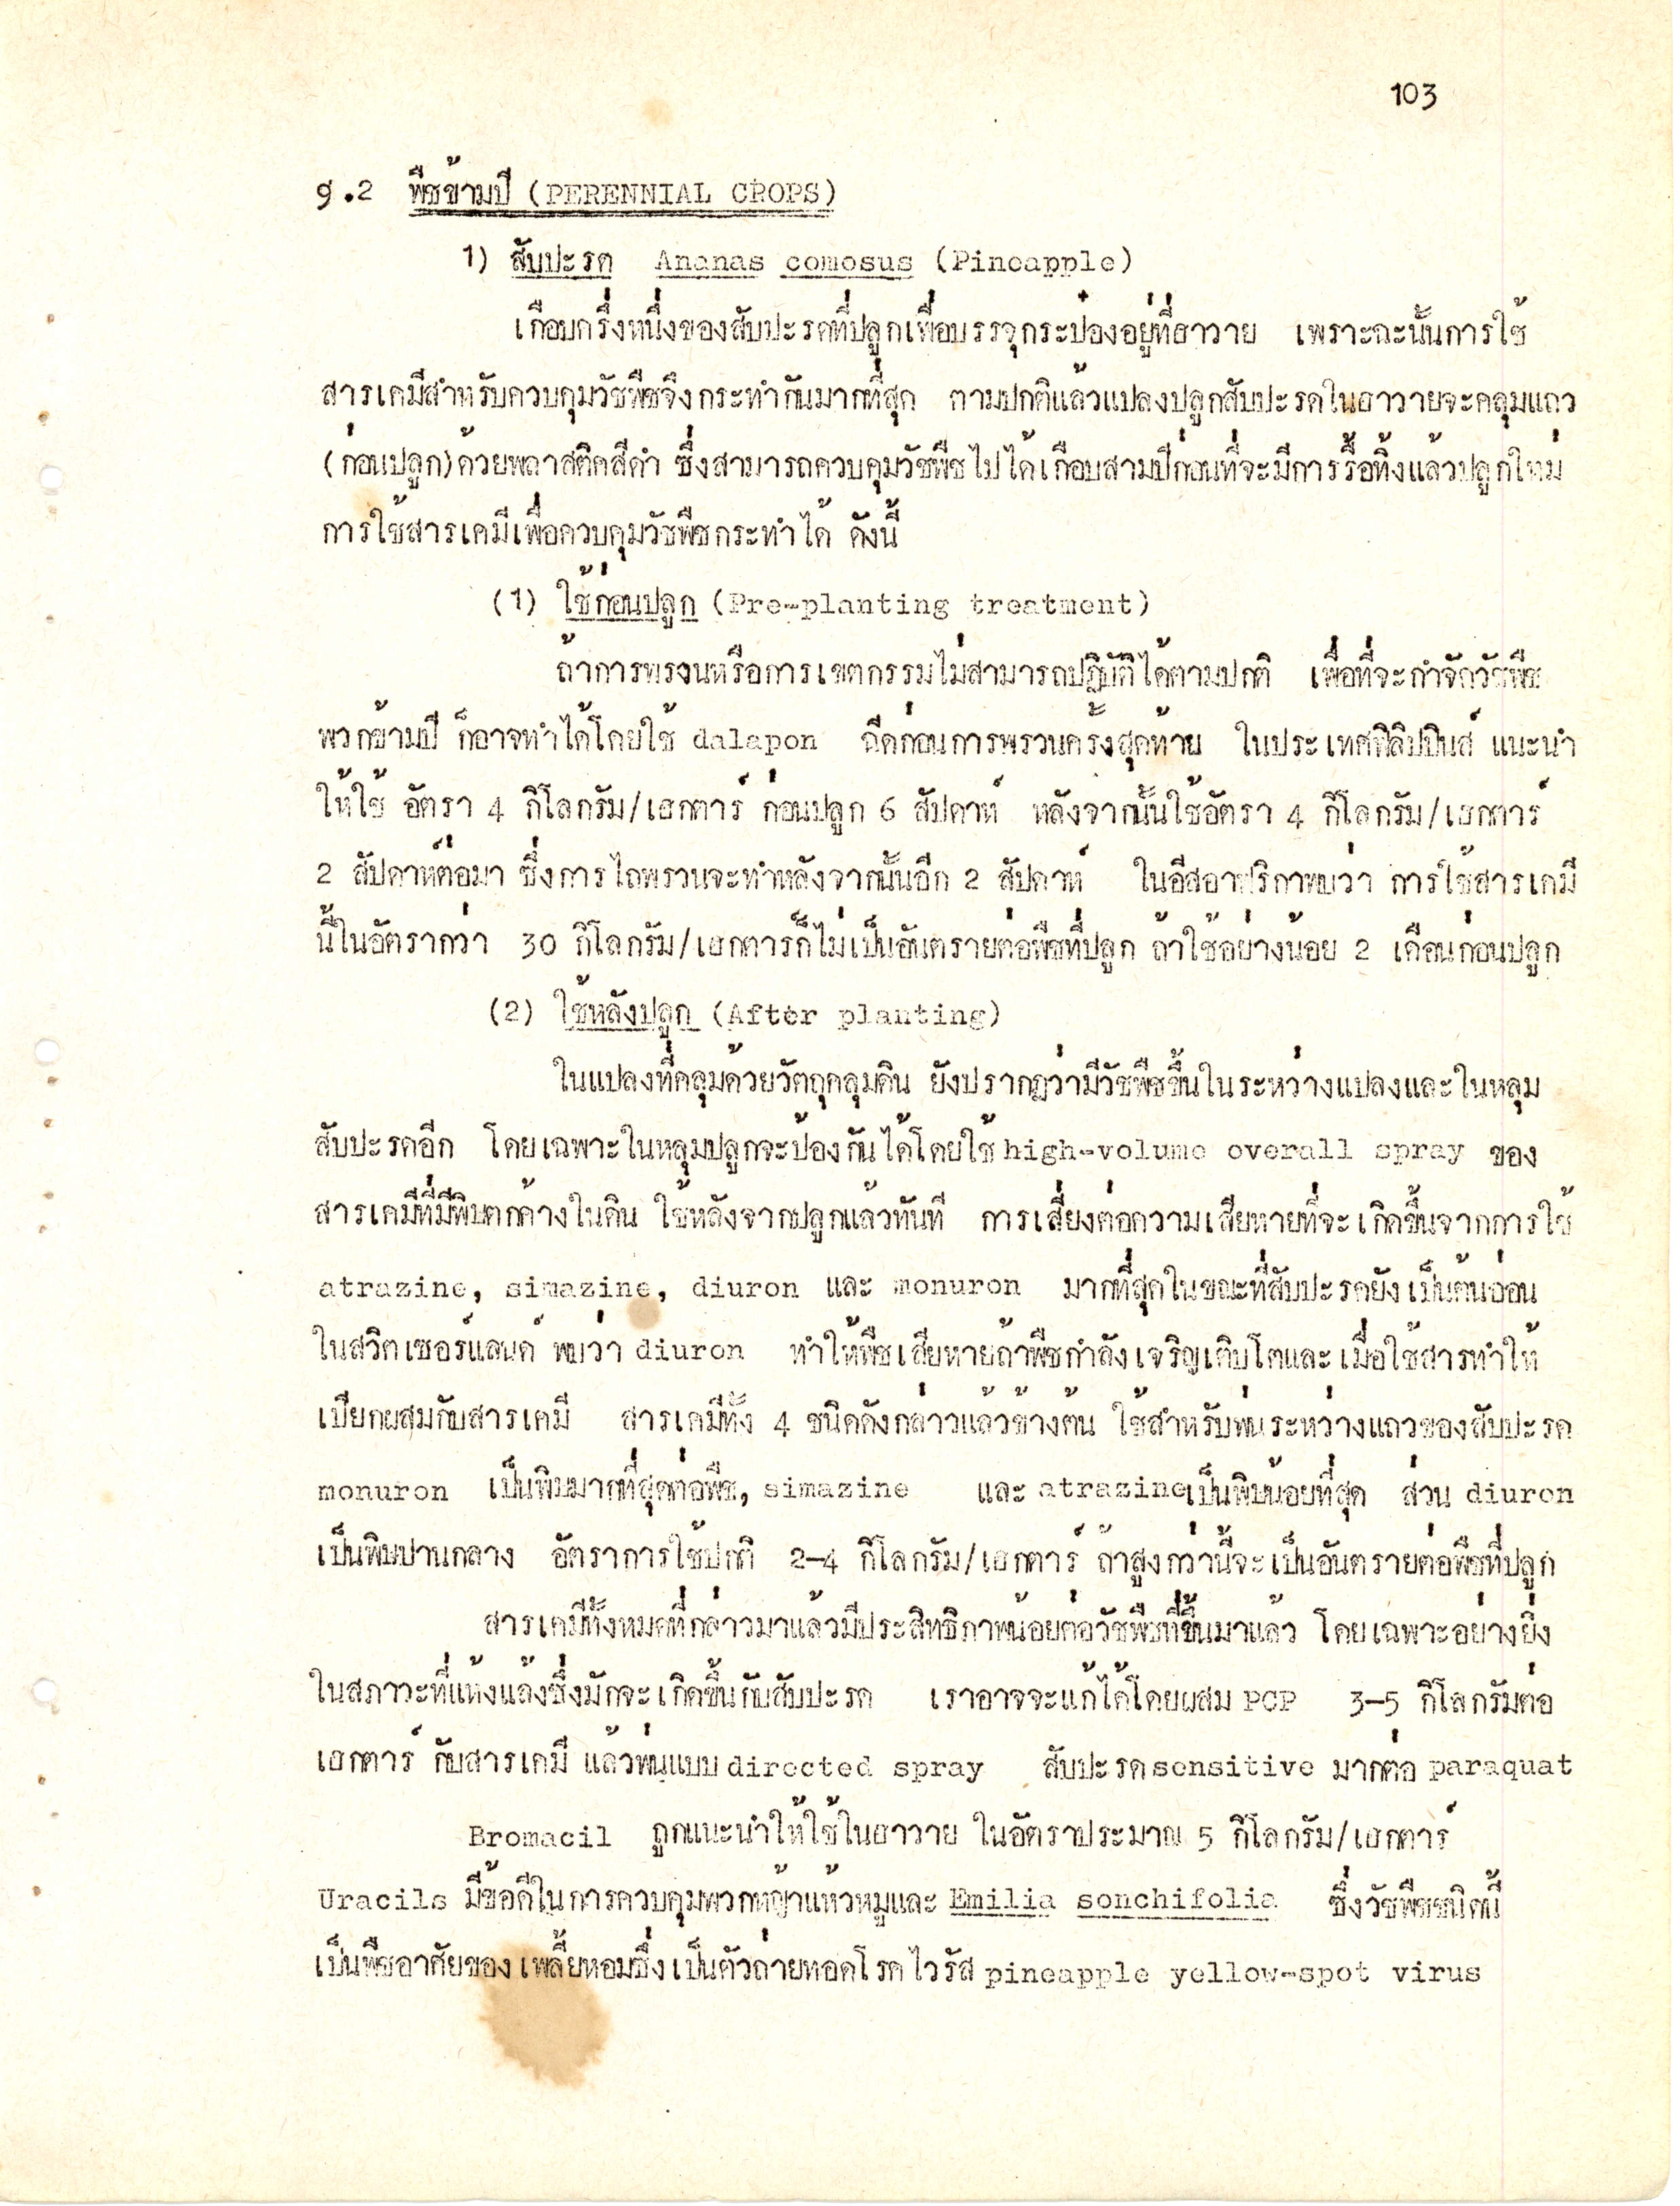 103
9.2 พืชข้ามปี (PERENNIAL CROPS)
1) สับปะรด Ananas comosus (Pineapple)
เกือบกรึ่งหนึ่งของสับปะรดที่ปลูกเพื่อบรรจุกระป๋องอยู่ที่ฮาวาย เพราะฉะนั้นการใช้
สารเคมีสำหรับควบคุมวัชพืชจึงกระทำกันมากที่สุด ตามปกติแล้วแปลงปลูกสับปะรดในฮาวายจะคลุมแถว
(ก่อนปลูก)ด้วยพลาสติคสีดำ ซึ่งสามารถควบคุมวัชพืชไปได้เกือบสามปีก่อนที่จะมีการรื้อทิ้งแล้วปลูกใหม่
การใช้สารเคมีเพื่อควบคุมวัชพืชกระทำได้ ดังนี้
(1) ใช้ก่อนปลูก (Pre-planting treatment)
ถ้าการพรวนหรือการเขตกรรมไม่สามารถปฏิบัติได้ตามปกติ เพื่อที่จะกำจัดวัชพืช
พวกข้ามปี ก็อาจทำได้โดยใช้ dalapon ฉีดก่อนการพรวนครั้งสุดท้าย ในประเทศฟิลิปปินส์ แนะนำ
ให้ใช้ อัตรา 4 กิโลกรัม/เฮกตาร์ ก่อนปลูก 6 สัปดาห์ หลังจากนั้นใช้อัตรา 4 กิโลกรัม/เฮกตาร์
2 สัปดาห์ต่อมา ซึ่งการไถพรวนจะทำหลังจากนั้นอีก 2 สัปดาห์ ในอีสอาฟริกาพบว่า การใช้สารเคมี
นี้ในอัตรากว่า 30 กิโลกรัม/เฮกตารก็ไม่เป็นอันตรายต่อพืชที่ปลูก ถ้าใช้อย่างน้อย 2 เดือนก่อนปลูก
(2) ใช้หลังปลูก (After planting)
ในแปลงที่คลุมด้วยวัตถุคลุมดิน ยังปรากฏว่ามีวัชพืชขึ้นในระหว่างแปลงและในหลุม
สับปะรดอีก โดยเฉพาะในหลุมปลูกจะป้องกันได้โดยใช้ high-volume overall spray ของ
สารเคมีที่มีพิษตกค้างในดิน ใช้หลังจากปลูกแล้วทันที การเสี่ยงต่อความเสียหายที่จะเกิดขึ้นจากการใช้
atrazine, simazine, diuron และ monuron มากที่สุดในขณะที่สับปะรดยังเป็นต้นอ่อน
ในสวิตเซอร์แลนด์ พบว่า diuron ทำให้พืชเสียหายถ้าพืชกำลังเจริญเติบโตและเมื่อใช้สารทำให้
เปียกผสมกับสารเคมี สารเคมีทั้ง 4 ชนิดดังกล่าวแล้วข้างต้น ใช้สำหรับพ่นระหว่างแถวของสับปะรด
monuron เป็นพิษมากที่สุดต่อพืช, simazine และ atrazineเป็นพิษน้อยที่สุด ส่วน diuron
เป็นพิษปานกลาง อัตราการใช้ปกติ 2-4 กิโลกรัม/เฮกตาร์ ถ้าสูงกว่านี้จะเป็นอันตรายต่อพืชที่ปลูก
สารเคมีทั้งหมดที่กล่าวมาแล้วมีประสิทธิภาพน้อยต่อวัชพืชที่ขึ้นมาแล้ว โดยเฉพาะอย่างยิ่ง
ในสภาวะที่แห้งแล้งซึ่งมักจะเกิดขึ้นกับสับปะรด เราอาจจะแก้ได้โดยผสม PCP 3-5 กิโลกรัมต่อ
เฮกตาร์ กับสารเคมี แล้วพ่นแบบ directed spray สับปะรด sensitive มากต่อ paraquat
Bromacil ถูกแนะนำให้ใช้ในฮาวาย ในอัตราประมาณ 5 กิโลกรัม/เฮกตาร์
Uracils มีข้อดีในการควบคุมพวกหญ้าแห้วหมูและ Emilia sonchifolia ซึ่งวัชพืชชนิดนี้
เป็นพืชอาศัยของเพลี้ยหอมซึ่งเป็นตัวถ่ายทอดโรคไวรัส pineapple yellow-spot virus